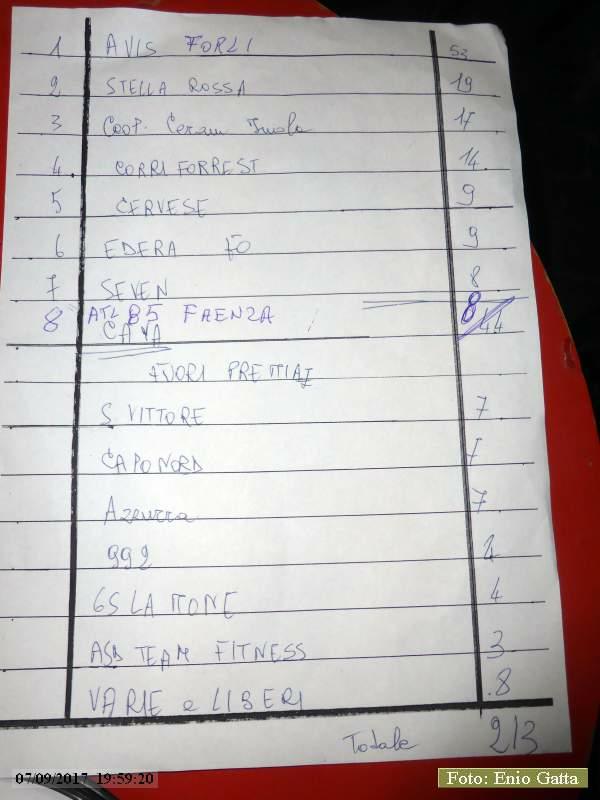 1 AVIS FORLI 53
2 STELLA ROSSA 19
3 COOP. Ceram Imola 17
4 CORRI FORREST 14
5 CERVESE 9
6 EDERA FO 9
7 SEVEN 8
8 ATL 85 FAENZA 8
CAVA 44
FUORI PREMIAZ
S VITTORE 7
CAPO NORD 7
Azzurra 7
992 4
GS LAMONE 4
ASD TEAM FITNESS 3
VARIE e LIBERI 8
Totale 213
07/09/2017 19:59:20
Foto: Enio Gatta